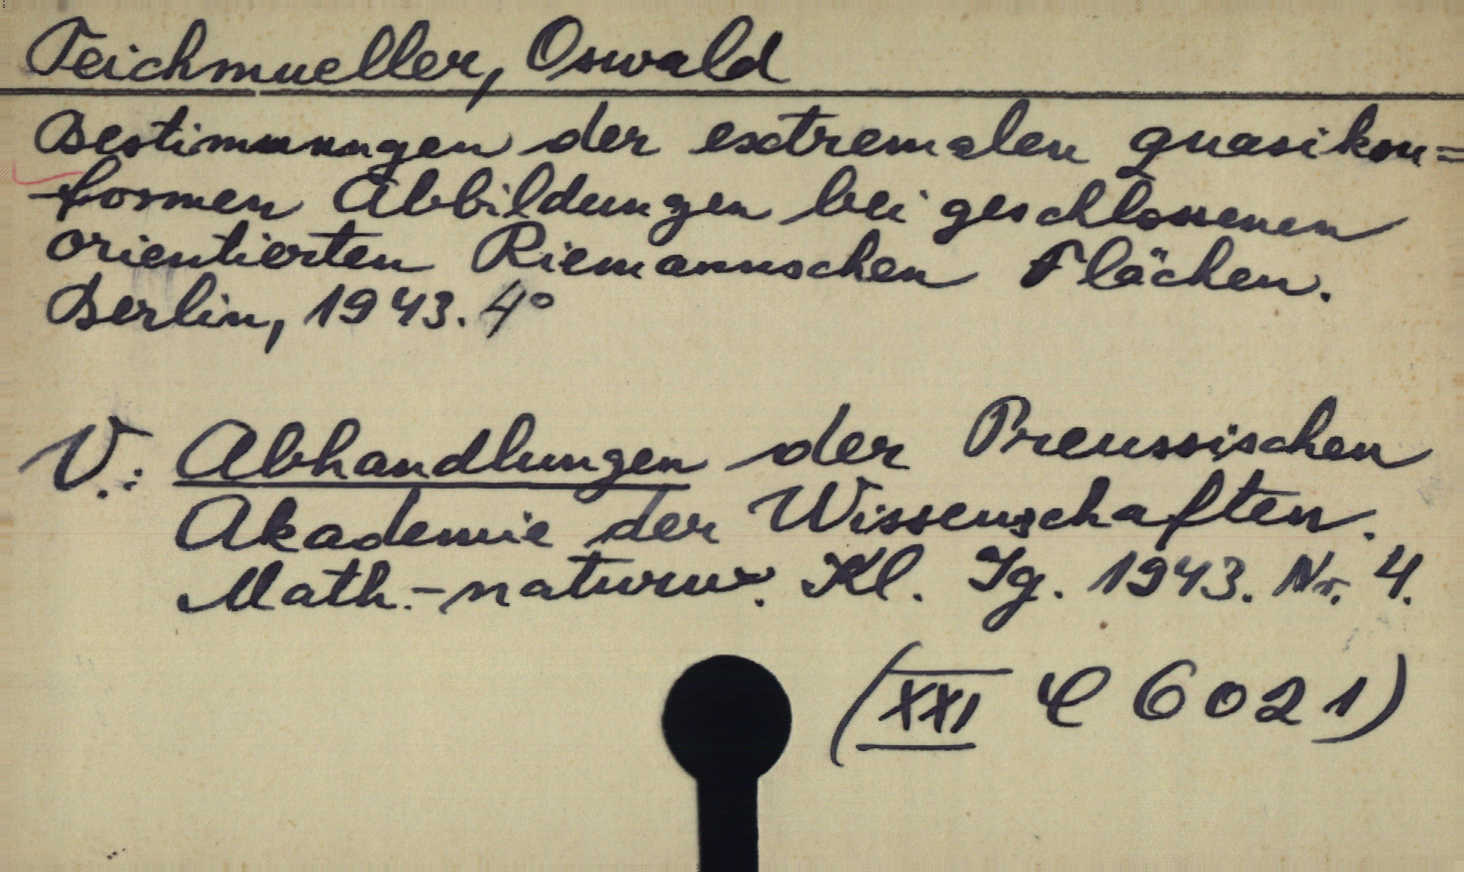 Teichmueller, Oswald
Bestimmungen der extremalen quasikon=
formen Abbildungen bei geschlossenen
orientierten Riemannschen Flächen.
Berlin, 1943. 4°
V.: Abhandlungen der Preussischen
Akademie der Wissenschaften.
Math.-naturw. Kl. Jg. 1943. Nr. 4.
(XXI C 6021)